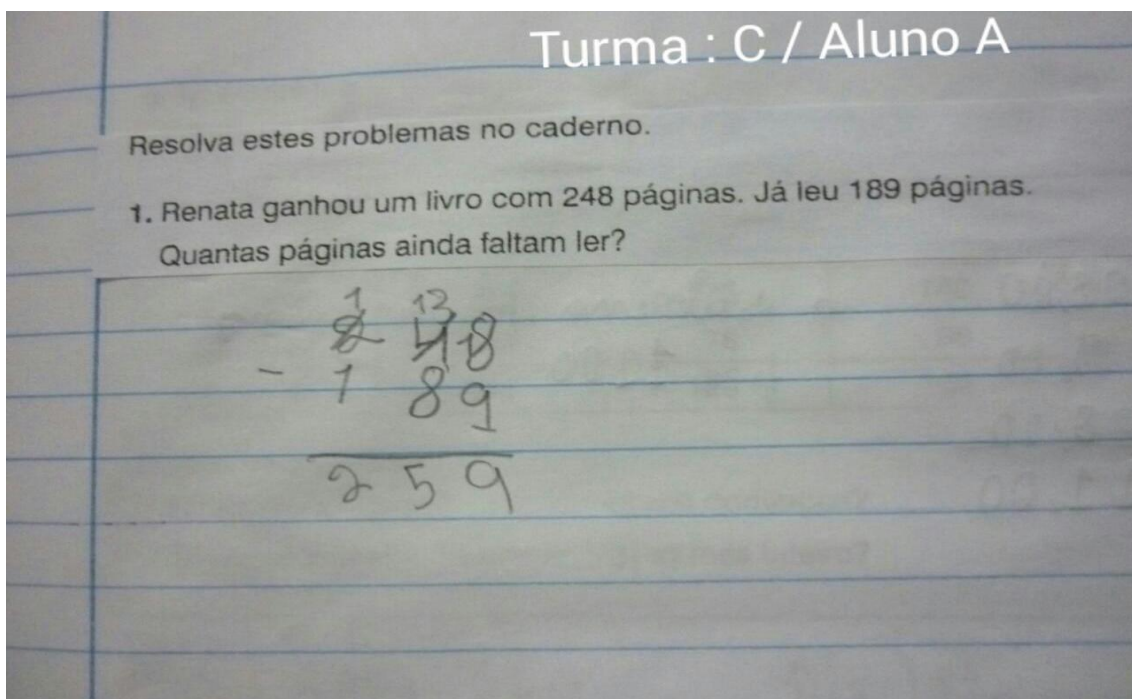 Turma : C / Aluno A
Resolva estes problemas no caderno.
1. Renata ganhou um livro com 248 páginas. Já leu 189 páginas.
Quantas páginas ainda faltam ler?
1 13
2 4 8
- 1 8 9
2 5 9